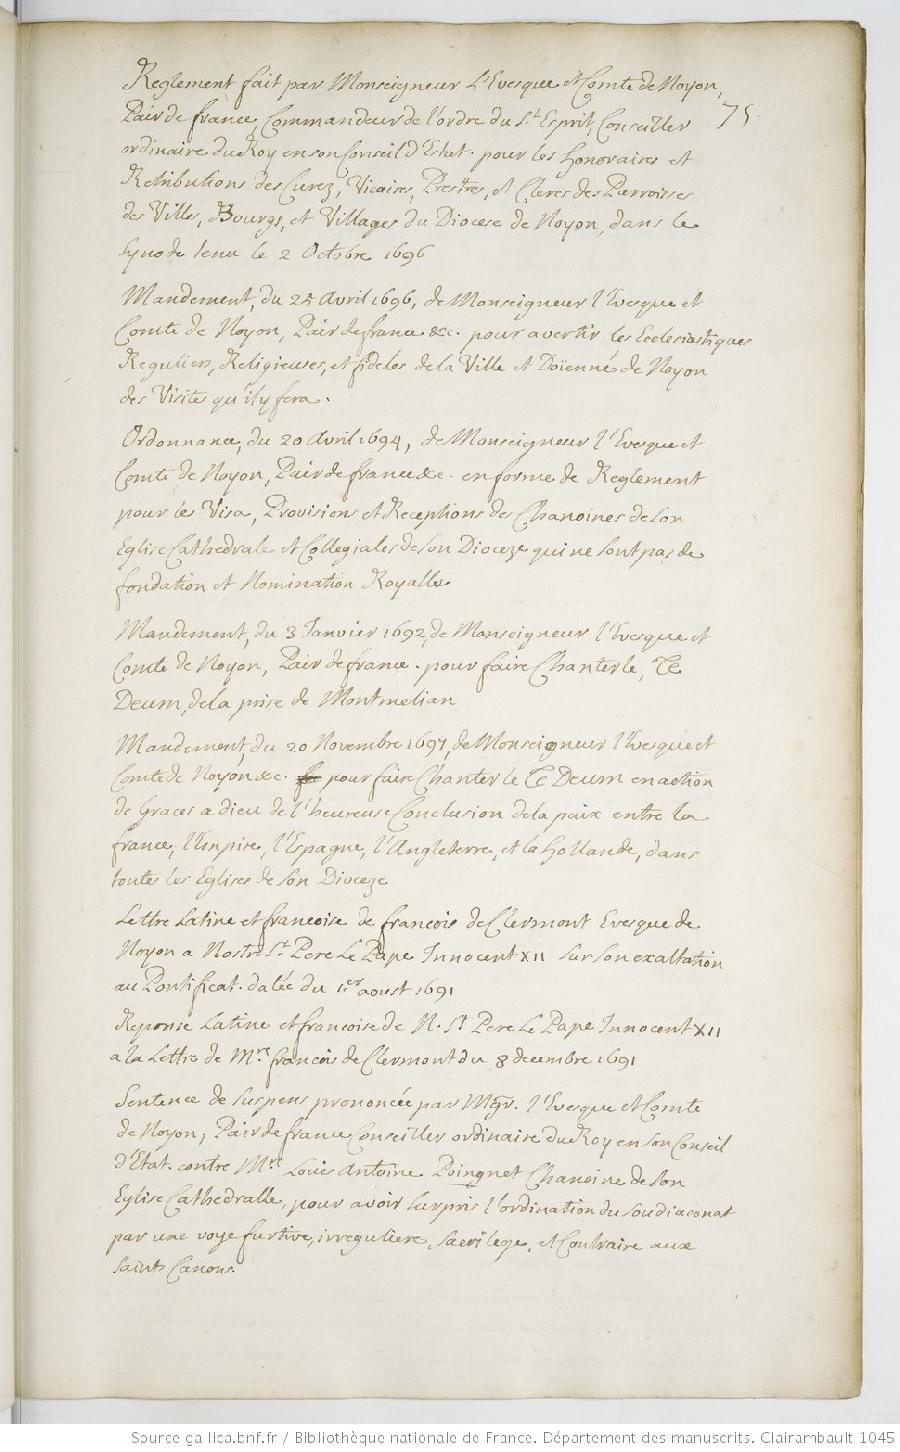 Reglement fait par Monseigneur L'Evesque et Comte de Noyon,
Pair de france Commandeur de l'ordre du St Esprit, Conseiller
75.
ordinaire du Roy en son Conseil d'Estat. pour les honoraires et
Retributions des Curez, Vicaires, Prestres, et Clercs des Parroisses
des Villes, Bourgs, et Villages du Diocese de Noyon, dans le
Synode tenu le 2 Octobre 1696
Mandement, du 25 Avril 1696, de Monseigneur l'Evesque et
Comte de Noyon, Pair de france &c. pour avertir les Ecclesiastiques
Reguliers, Religieuses, et fideles de la Ville et Doïenné de Noyon
des Visites qu'il y fera.
Ordonnance, du 20 Avril 1694, de Monseigneur l'Evesque et
Comte de Noyon, Pair de france &c. en forme de Reglement
pour les Visa, Provisions et Receptions des Chanoines de son
Eglise Cathedrale et Collegiales de son Dioceze qui ne sont pas de
fondation et Nomination Royalle.
Mandement, du 3 Janvier 1692, de Monseigneur l'Evesque et
Comte de Noyon, Pair de france. pour faire Chanter le, Te
Deum, de la prise de Montmelian
Mandement, du 20 Novembre 1697, de Monseigneur l'Evesque et
Comte de Noyon &c. pour faire Chanter le Te Deum en action
de Graces a dieu de l'heureuse Conclusion de la paix entre la
france, l'Empire, l'Espagne, l'Angleterre, et la Hollande, dans
toutes les Eglises de son Dioceze
Lettre Latine et francoise de francois de Clermont Evesque de
Noyon a Nostre St. Pere Le Pape Innocent XII sur son exaltation
au Pontificat. datée du 1er aoust 1691
Reponse Latine et francoise de N. St Pere Le Pape Innocent XII
a la Lettre de Mre francois de Clermont du 8 decembre 1691
Sentence de suspens prononcée par Mgr. l'Evesque et Comte
de Noyon, Pair de france Conseiller ordinaire du Roy en son Conseil
d'Etat. contre Mre Louis Antoine Poingnet Chanoine de son
Eglise Cathedralle, pour avoir surpris l'ordination du soudiaconat
par une voye furtive, irreguliere, sacrilege, et Contraire aux
saints Canons.
Source gallica.bnf.fr / Bibliothèque nationale de France. Département des manuscrits. Clairambault 1045